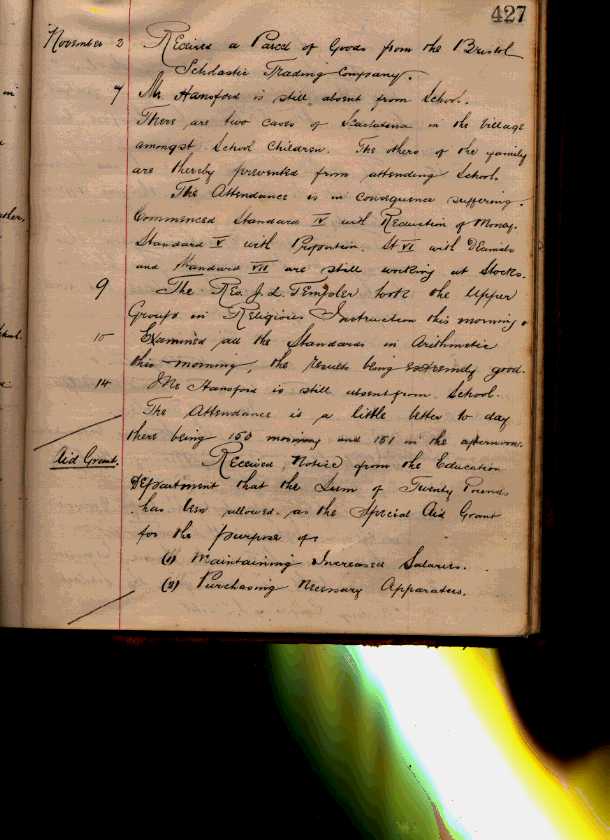 427
November 3 Received a Parcel of Goods from the Bristol
Scholastic Trading Company.
7 Mr Hansford is still absent from School.
There are two cases of Scarlatena in the Village
amongst School Children. The others of the family
are thereby prevented from attending School.
The Attendance is in consequence suffering.
Commenced Standard IV with Reduction of Money.
Standard V with Proportion. St VI with Decimals
and Standard VII are still working at Stocks.
9 The Rev. J. L. Templer took the Upper
Groups in Religious Instruction this morning.
10 Examined all the Standards in Arithmetic
this morning, the results being extremely good.
14 Mr Hansford is still absent from School.
The Attendance is a little better to day
there being 150 morning and 151 in the afternoon.
Aid Grant. Received Notice from the Education
Department that the Sum of Twenty Pounds
has been allowed as the Special Aid Grant
for the purpose of
(1) Maintaining Increased Salaries.
(2) Purchasing Necessary Apparatus.